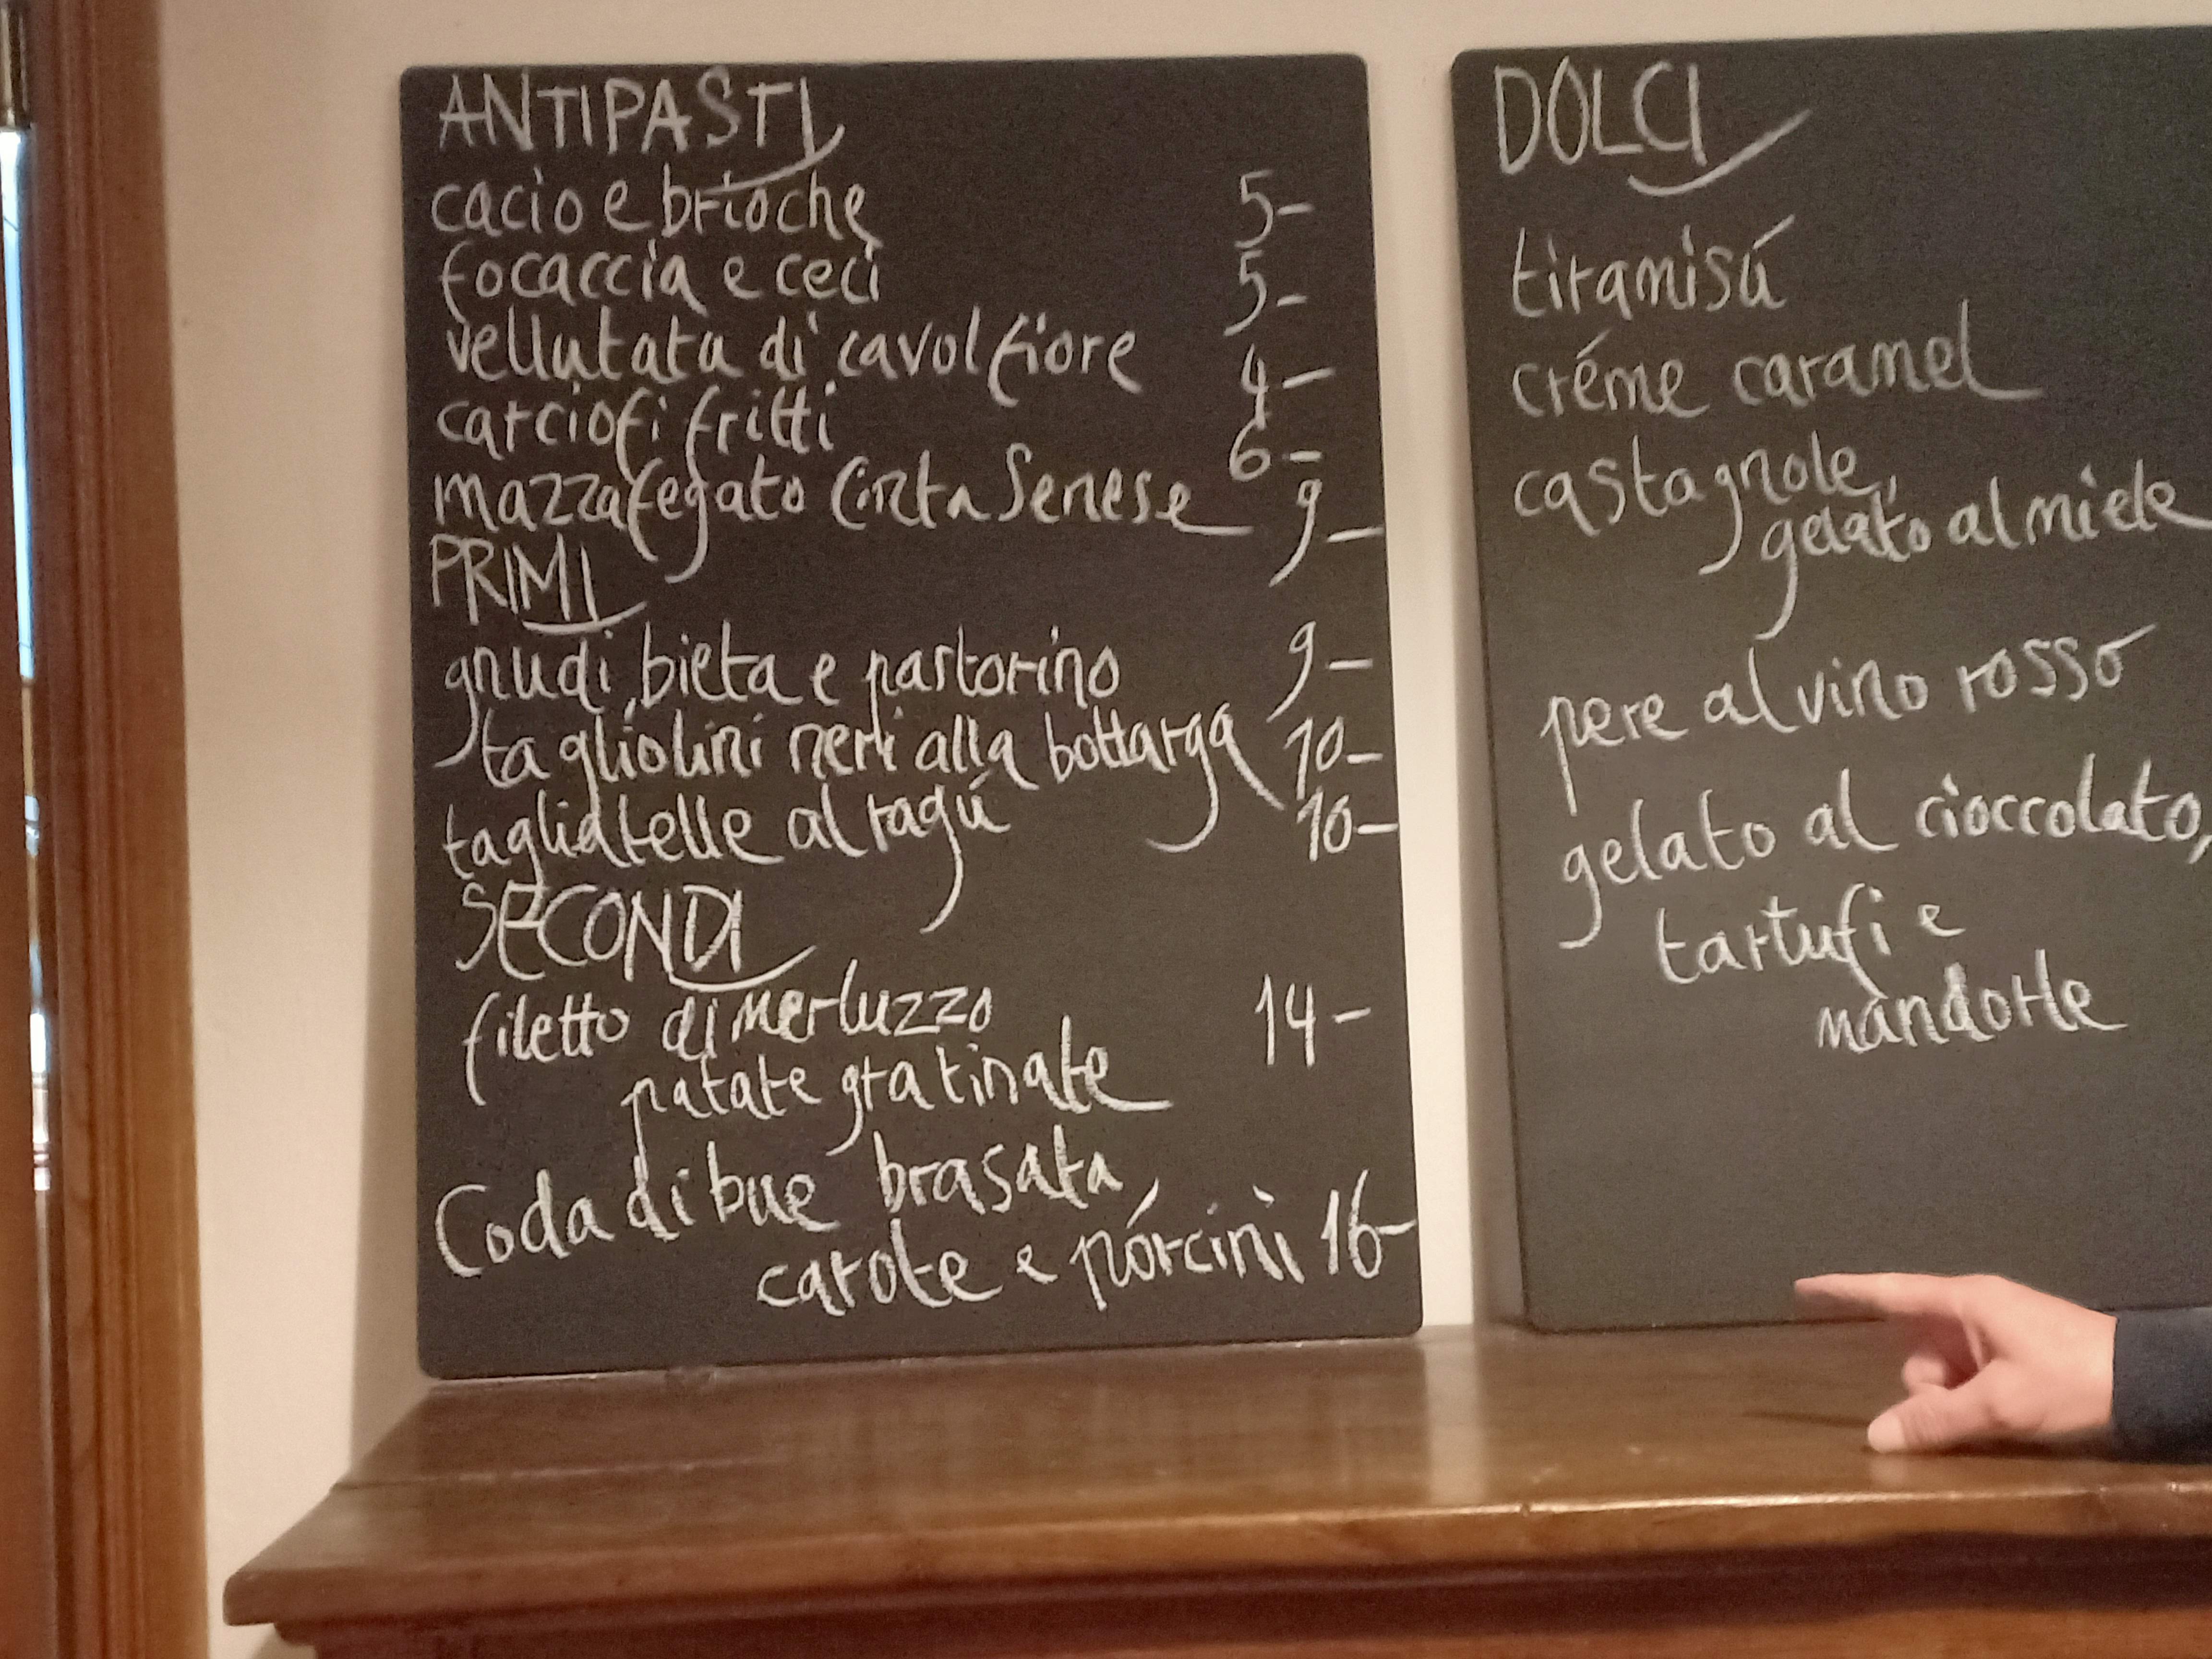 ANTIPASTI
cacio e brioche 5-
focaccia e ceci 5-
vellutata di cavolfiore 4-
carciofi fritti 6-
mazzafegato Cinta Senese 9-
PRIMI
gnudi, bieta e pastorino 9-
tagliolini neri alla bottarga 10-
tagliatelle al ragú 10-
SECONDI
filetto di merluzzo 14-
patate gratinate
Coda di bue brasata,
carote e porcini 16-
DOLCI
tiramisú
créme caramel
castagnole,
gelato al miele
pere al vino rosso
gelato al cioccolato,
tartufi e
mandorle